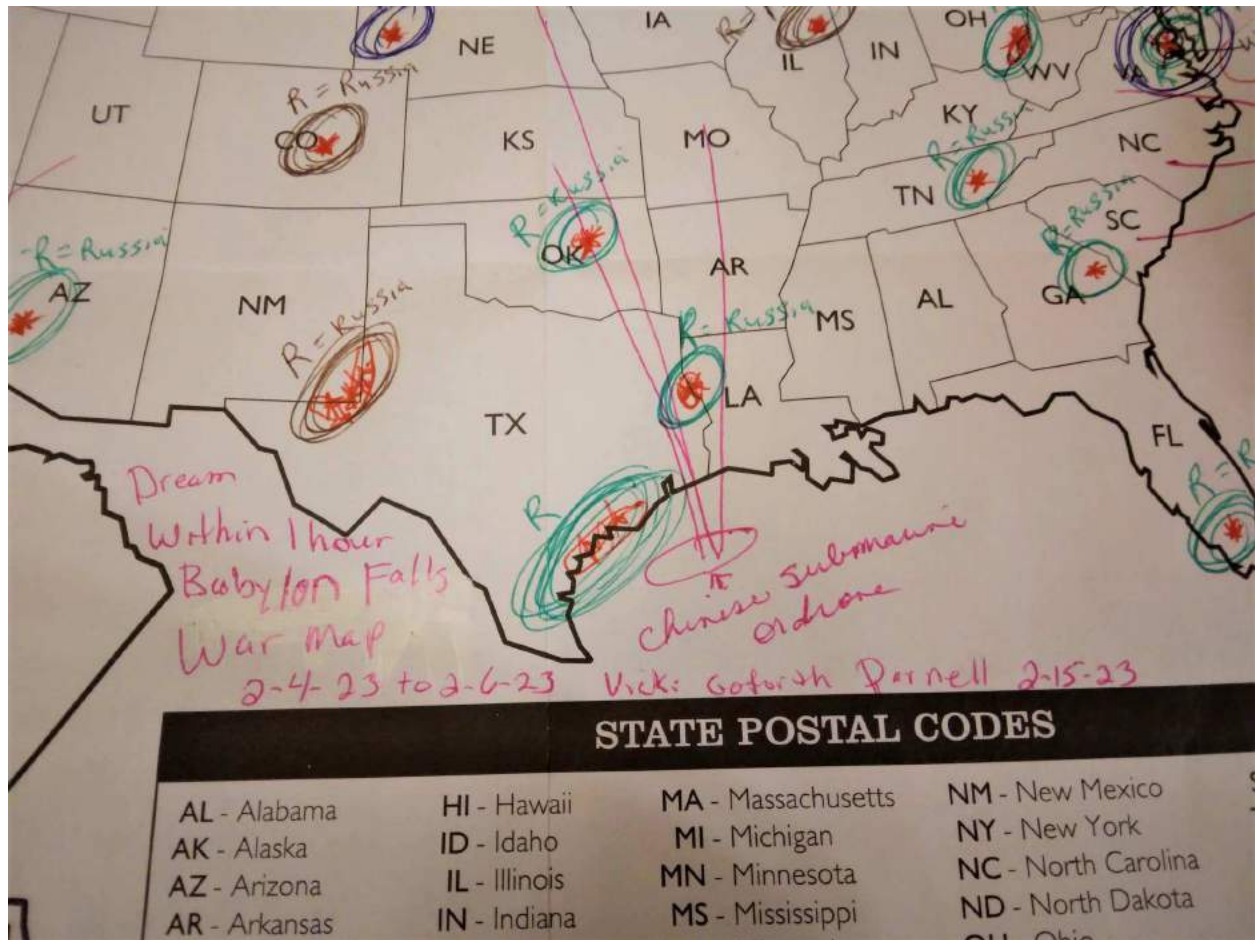 IA
OH
NE
R =
IL
IN
WV
VA
R = Russia
UT
CO
KS
MO
KY
R = Russia
NC
R = Russia
TN
R = Russia
SC
R = Russia
OK
AZ
AR
GA
NM
R = Russia
R = Russia
MS
AL
LA
TX
FL
R =
R
Dream
Within 1 hour
Babylon Falls
War Map
2-4-23 to 2-6-23
Chinese submaurine
or drone
Vicki Goforth Parnell 2-15-23
STATE POSTAL CODES
AL - Alabama
AK - Alaska
AZ - Arizona
AR - Arkansas
HI - Hawaii
ID - Idaho
IL - Illinois
IN - Indiana
MA - Massachusetts
MI - Michigan
MN - Minnesota
MS - Mississippi
NM - New Mexico
NY - New York
NC - North Carolina
ND - North Dakota
OH - Ohio